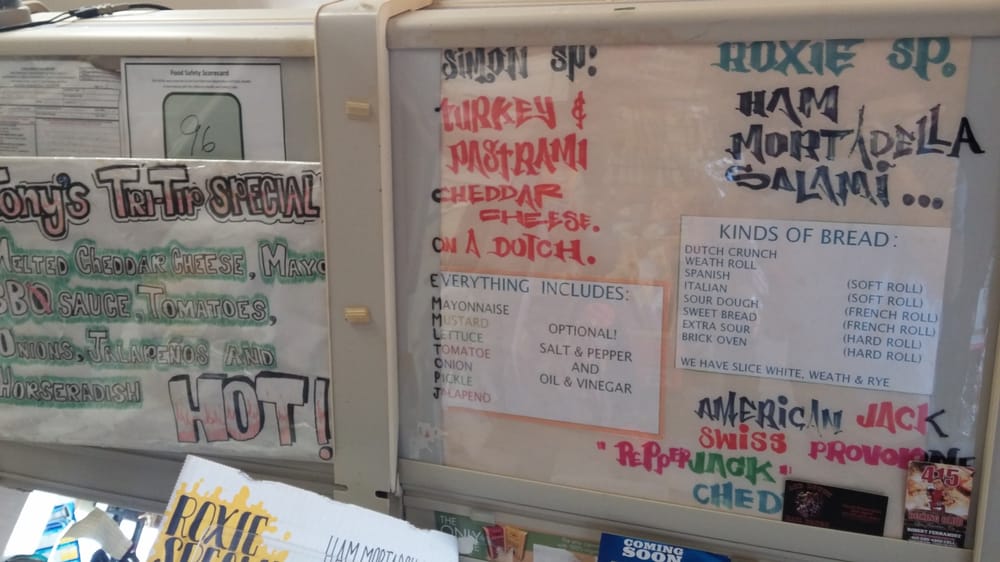 Food Safety Scorecard
96
Tony's Tri-Tip SPECIAL
MELTED CHEDDAR CHEESE, MAYO
BBQ SAUCE, TOMATOES,
ONIONS, JALAPEÑOS AND
HORSERADISH
HOT!
SIMON SP:
TURKEY &
PASTRAMI
CHEDDAR
CHEESE.
ON A DUTCH.
EVERYTHING INCLUDES:
MAYONNAISE
MUSTARD
LETTUCE
TOMATOE
ONION
PICKLE
JALAPENO
OPTIONAL!
SALT & PEPPER
AND
OIL & VINEGAR
ROXIE SP.
HAM
MORTADELLA
SALAMI...
KINDS OF BREAD:
DUTCH CRUNCH
WEATH ROLL
SPANISH
ITALIAN (SOFT ROLL)
SOUR DOUGH (SOFT ROLL)
SWEET BREAD (FRENCH ROLL)
EXTRA SOUR (FRENCH ROLL)
BRICK OVEN (HARD ROLL)
(HARD ROLL)
WE HAVE SLICE WHITE, WEATH & RYE
AMERICAN JACK
SWISS PROVOLONE
"PEPPERJACK"
CHED
415
ROBERT FERNANDEZ
ROXIE
SPECIAL
HAM MORTADELLA
THE
ONLY
COMING
SOON